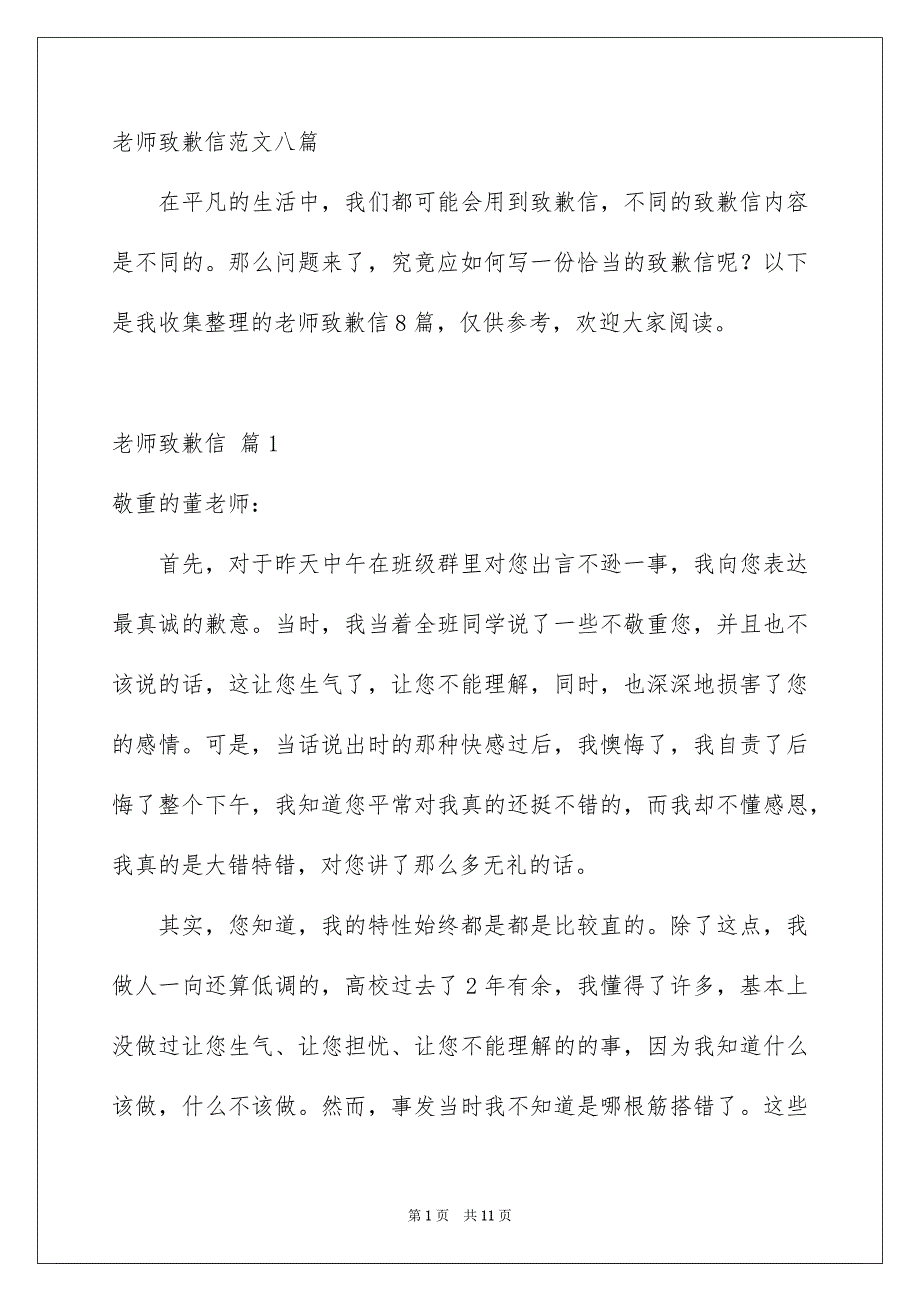 老师致歉信范文八篇
在平凡的生活中，我们都可能会用到致歉信，不同的致歉信内容
是不同的。那么问题来了，究竟应如何写一份恰当的致歉信呢？以下
是我收集整理的老师致歉信8篇，仅供参考，欢迎大家阅读。
老师致歉信 篇1
敬重的董老师：
首先，对于昨天中午在班级群里对您出言不逊一事，我向您表达
最真诚的歉意。当时，我当着全班同学说了一些不敬重您，并且也不
该说的话，这让您生气了，让您不能理解，同时，也深深地损害了您
的感情。可是，当话说出时的那种快感过后，我懊悔了，我自责了后
悔了整个下午，我知道您平常对我真的还挺不错的，而我却不懂感恩，
我真的是大错特错，对您讲了那么多无礼的话。
其实，您知道，我的特性始终都是都是比较直的。除了这点，我
做人一向还算低调的，高校过去了2年有余，我懂得了许多，基本上
没做过让您生气、让您担忧、让您不能理解的的事，因为我知道什么
该做，什么不该做。然而，事发当时我不知道是哪根筋搭错了。这些
第1页 共11页